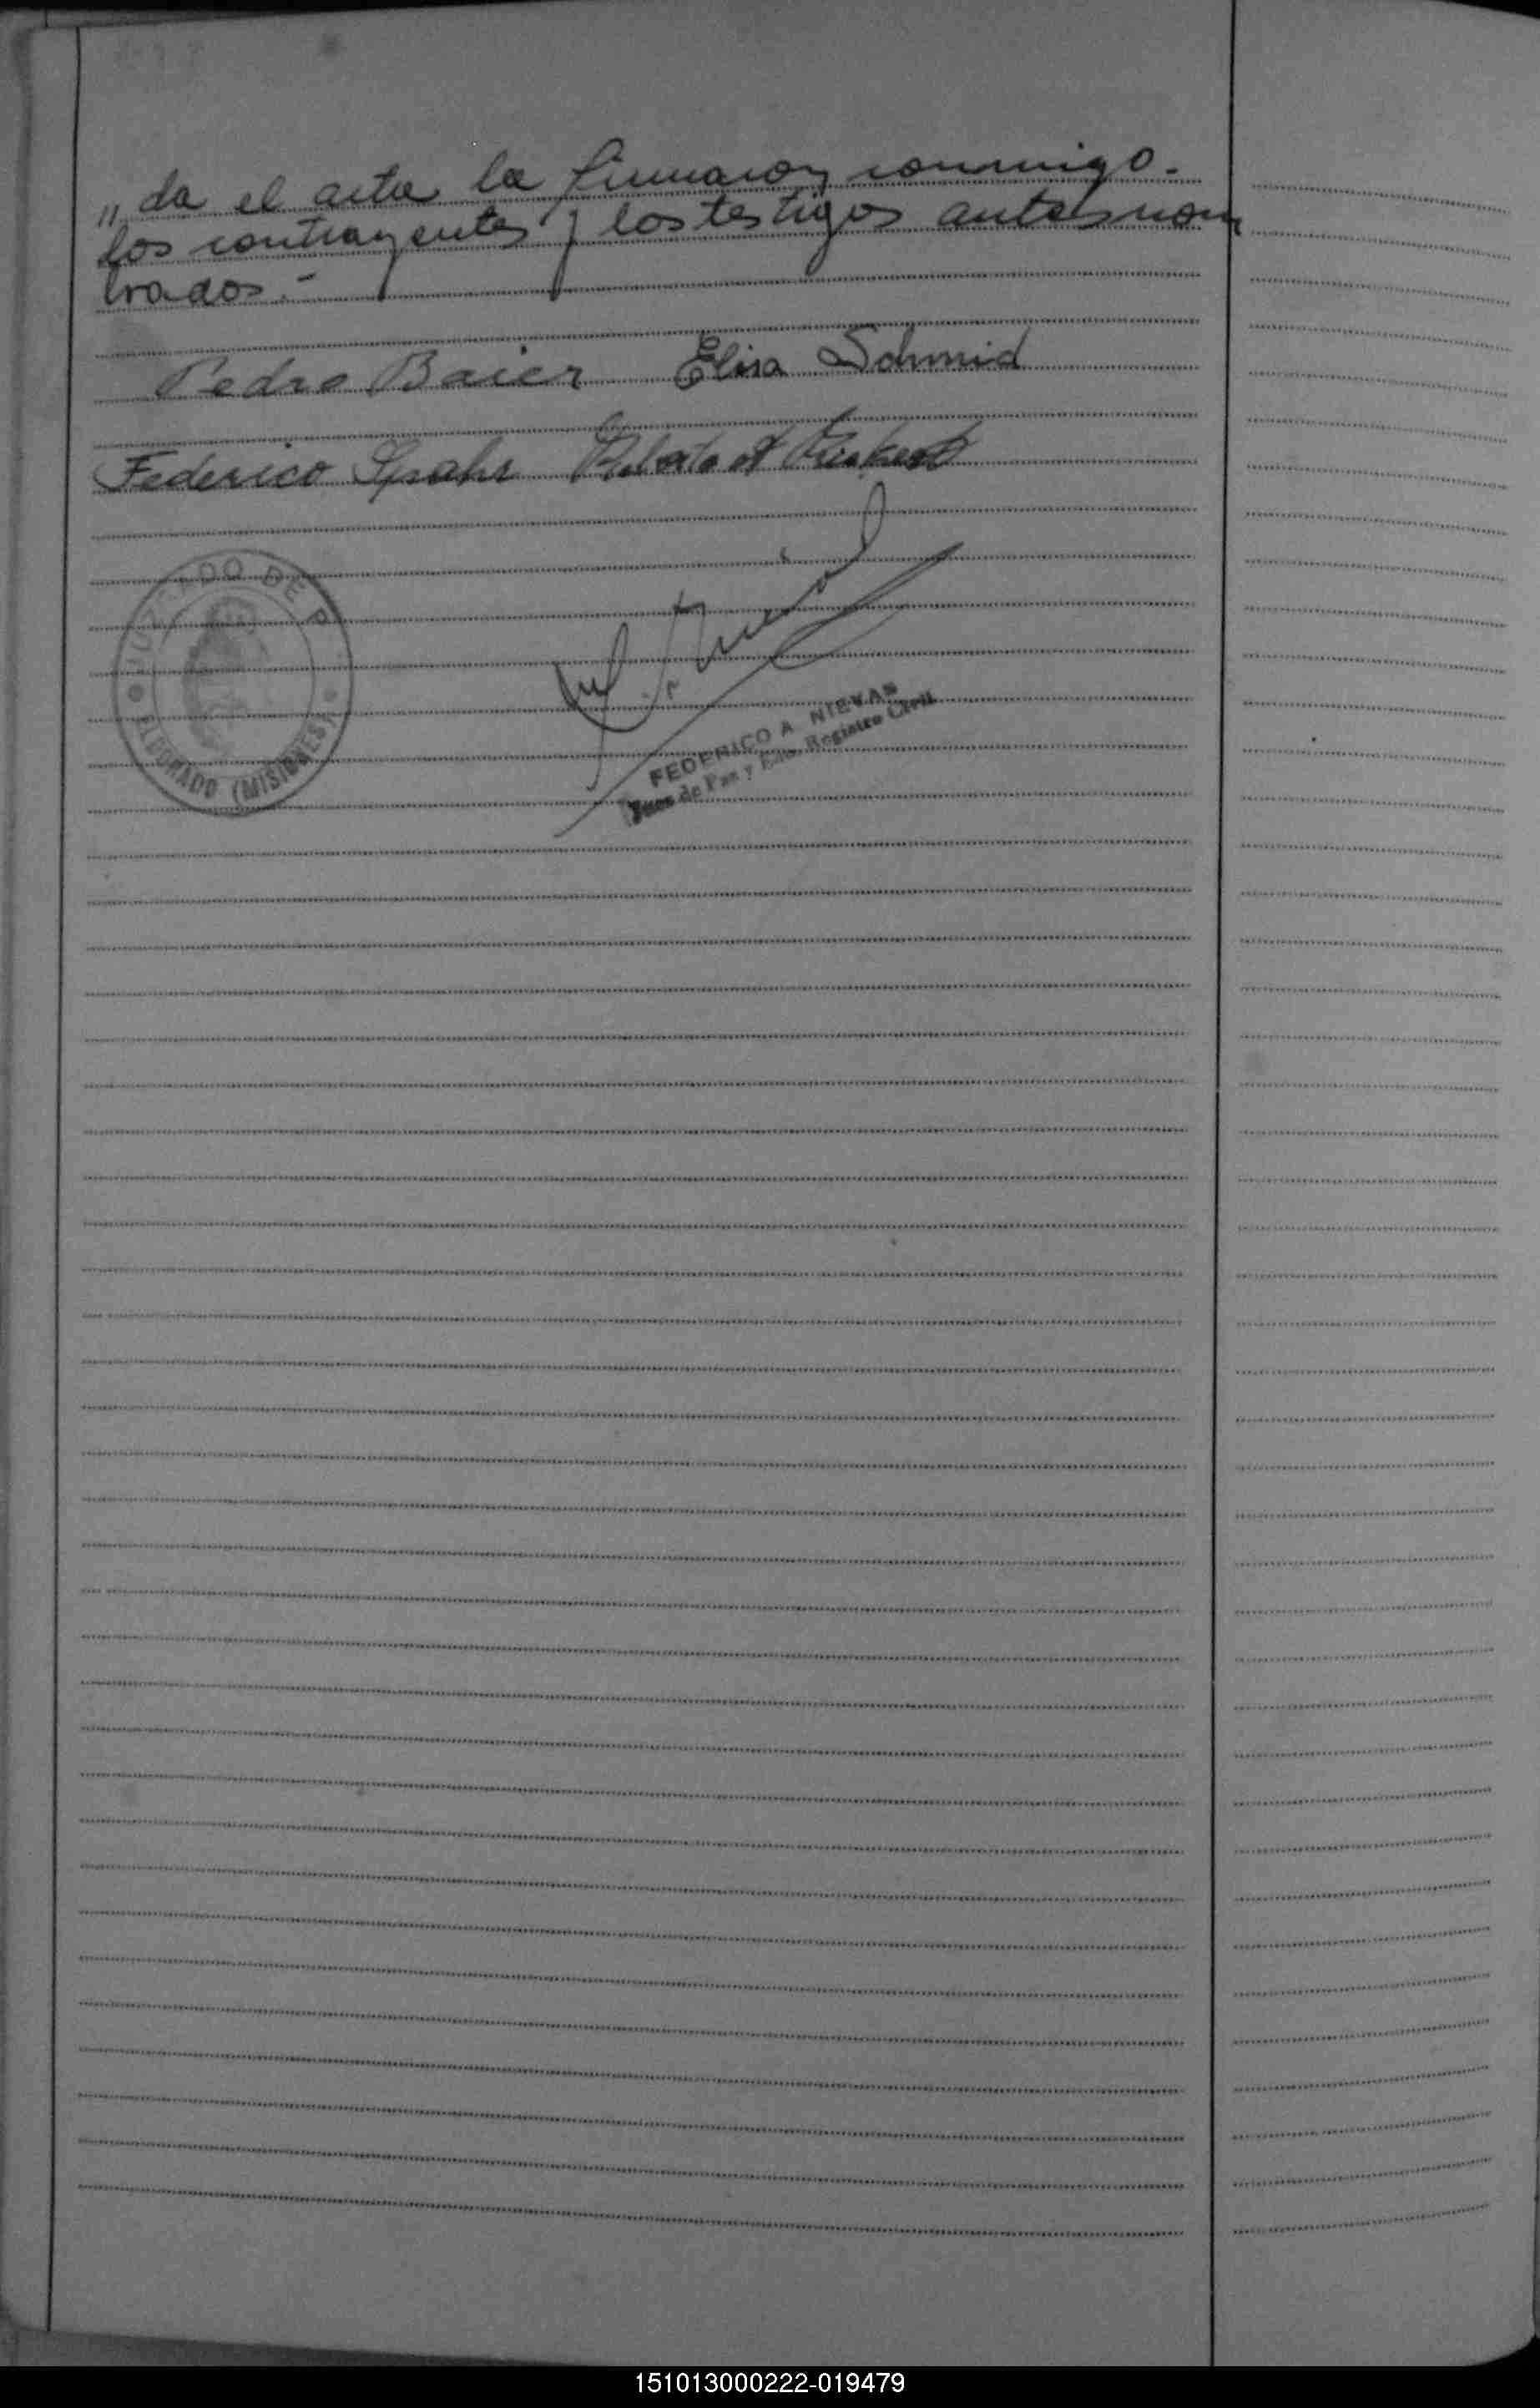 „da el acta la firmaron conmigo.-
los contrayentes y los testigos antes nom
brados.-
Pedro Baier Elisa Schmid
Federico Spahr Roberto A
JUZGADO DE P
ELDORADO (MISIONES)
FEDERICO A. NIEVAS
Juez de Paz y Enc. Registro Civil
151013000222-019479